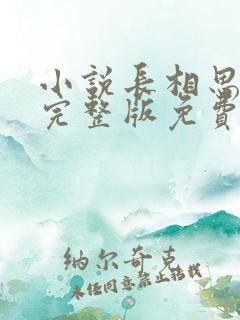 小说长相思
完整版免费
纳尔奇克
未经同意禁止转载